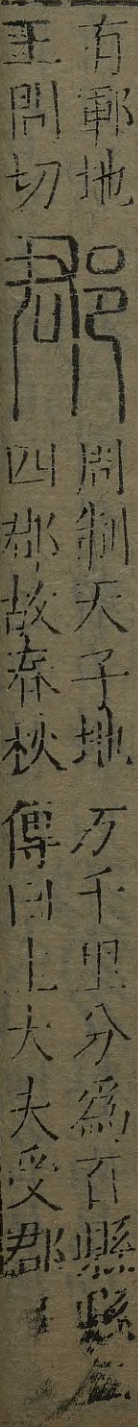 有鄆地
王問切
郡
周制天子地方千里分爲百縣縣有
四郡故春秋傳曰上大夫受郡